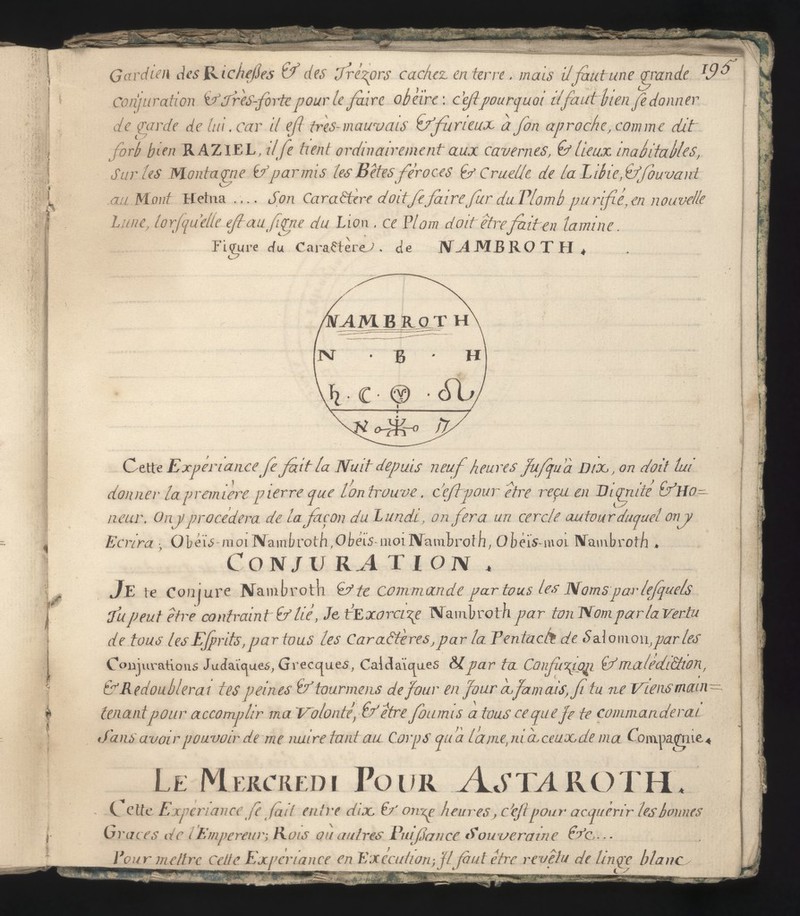 195
Gardien des Richeſſes & des Trézors cachez en terre. mais il faut une grande
Conjuration & Très-forte pour le faire obéïre: c'eſt pourquoi il faut bien ſe donner
de garde de lui. car il eſt très-mauvais & furieux à ſon aproche, comme dit
forb bien RAZIEL, il ſe tient ordinairement aux cavernes, & lieux inabitables,
Sur les Montagne & parmis les Bêtes féroces & Cruelle de la Libie, & ſouvant
au Mont Hetna .... Son Caractère doit ſe faire ſur du Plomb purifié, en nouvelle
Lune, lorſqu'elle eſt au ſigne du Lion. ce Plom doit être fait en lamine.
Figure du Caractère. de NAMBROTH.
NAMBROTH
N · B · H
♄ · ☾ · ♈ · ♌
N
Cette Expériance ſe fait la Nuit depuis neuf heures Juſqu'à Dix, on doit lui
donner la première pierre que l'on trouve. c'eſt pour être reçu en Dignité & Ho=
neur. On y procédera de la façon du Lundi, on fera un cercle autour duquel on y
Ecrira; Obéïs-moi Nambroth, Obéïs-moi Nambroth, Obéïs-moi Nambroth.
CONJURATION.
JE te Conjure Nambroth & te commande par tous les Noms par leſquels
Tu peut être contraint & lié, Je t'Exorcize Nambroth par ton Nom par la Vertu
de tous les Eſprits, par tous les Caractères, par la Pentacle de Salomon, par les
Conjurations Judaïques, Grecques, Caldaïques & par ta Confuzion & malédiction,
& Redoublerai tes peines & tourmens de Jour en Jour à Jamais, ſi tu ne Viens main=
tenant pour accomplir ma Volonté, & être ſoumis à tous ce que Je te commanderai
Sans avoir pouvoir de me nuire tant au Corps qu'à l'âme, ni à ceux de ma Compagnie.
LE MERCREDI POUR ASTAROTH.
Cette Expériance ſe fait entre dix & onze heures, c'eſt pour acquérir les bonnes
Graces de l'Empereur; Rois où autres Puiſſance Souveraine &c...
Pour mettre cette Expériance en Exécution; Il faut être revêtu de linge blanc